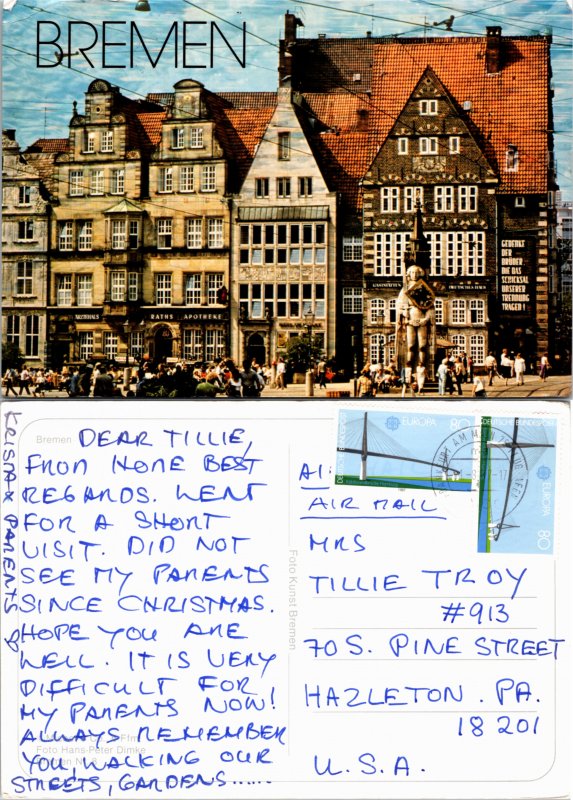 BREMEN
GEDENKE
DER
BRÜDER
DIE DAS
SCHICKSAL
UNSERER
TRENNUNG
TRAGEN!
RATHS APOTHEKE
Bremen
DEAR TILLIE,
FROM HOME BEST
REGARDS. WENT
FOR A SHORT
VISIT. DID NOT
SEE MY PARENTS
SINCE CHRISTMAS.
HOPE YOU ARE
WELL. IT IS VERY
DIFFICULT FOR
MY PARENTS NOW!
ALWAYS REMEMBER
YOU, WALKING OUR
STREETS, GARDENS......
& PARENTS
Foto Hans-Peter Dimke
Foto Kunst Bremen
EUROPA 80
DEUTSCHE BUNDESPOST
EUROPA
80
AIR MAIL
MRS
TILLIE TROY
#913
70 S. PINE STREET
HAZLETON. PA.
18201
U.S.A.